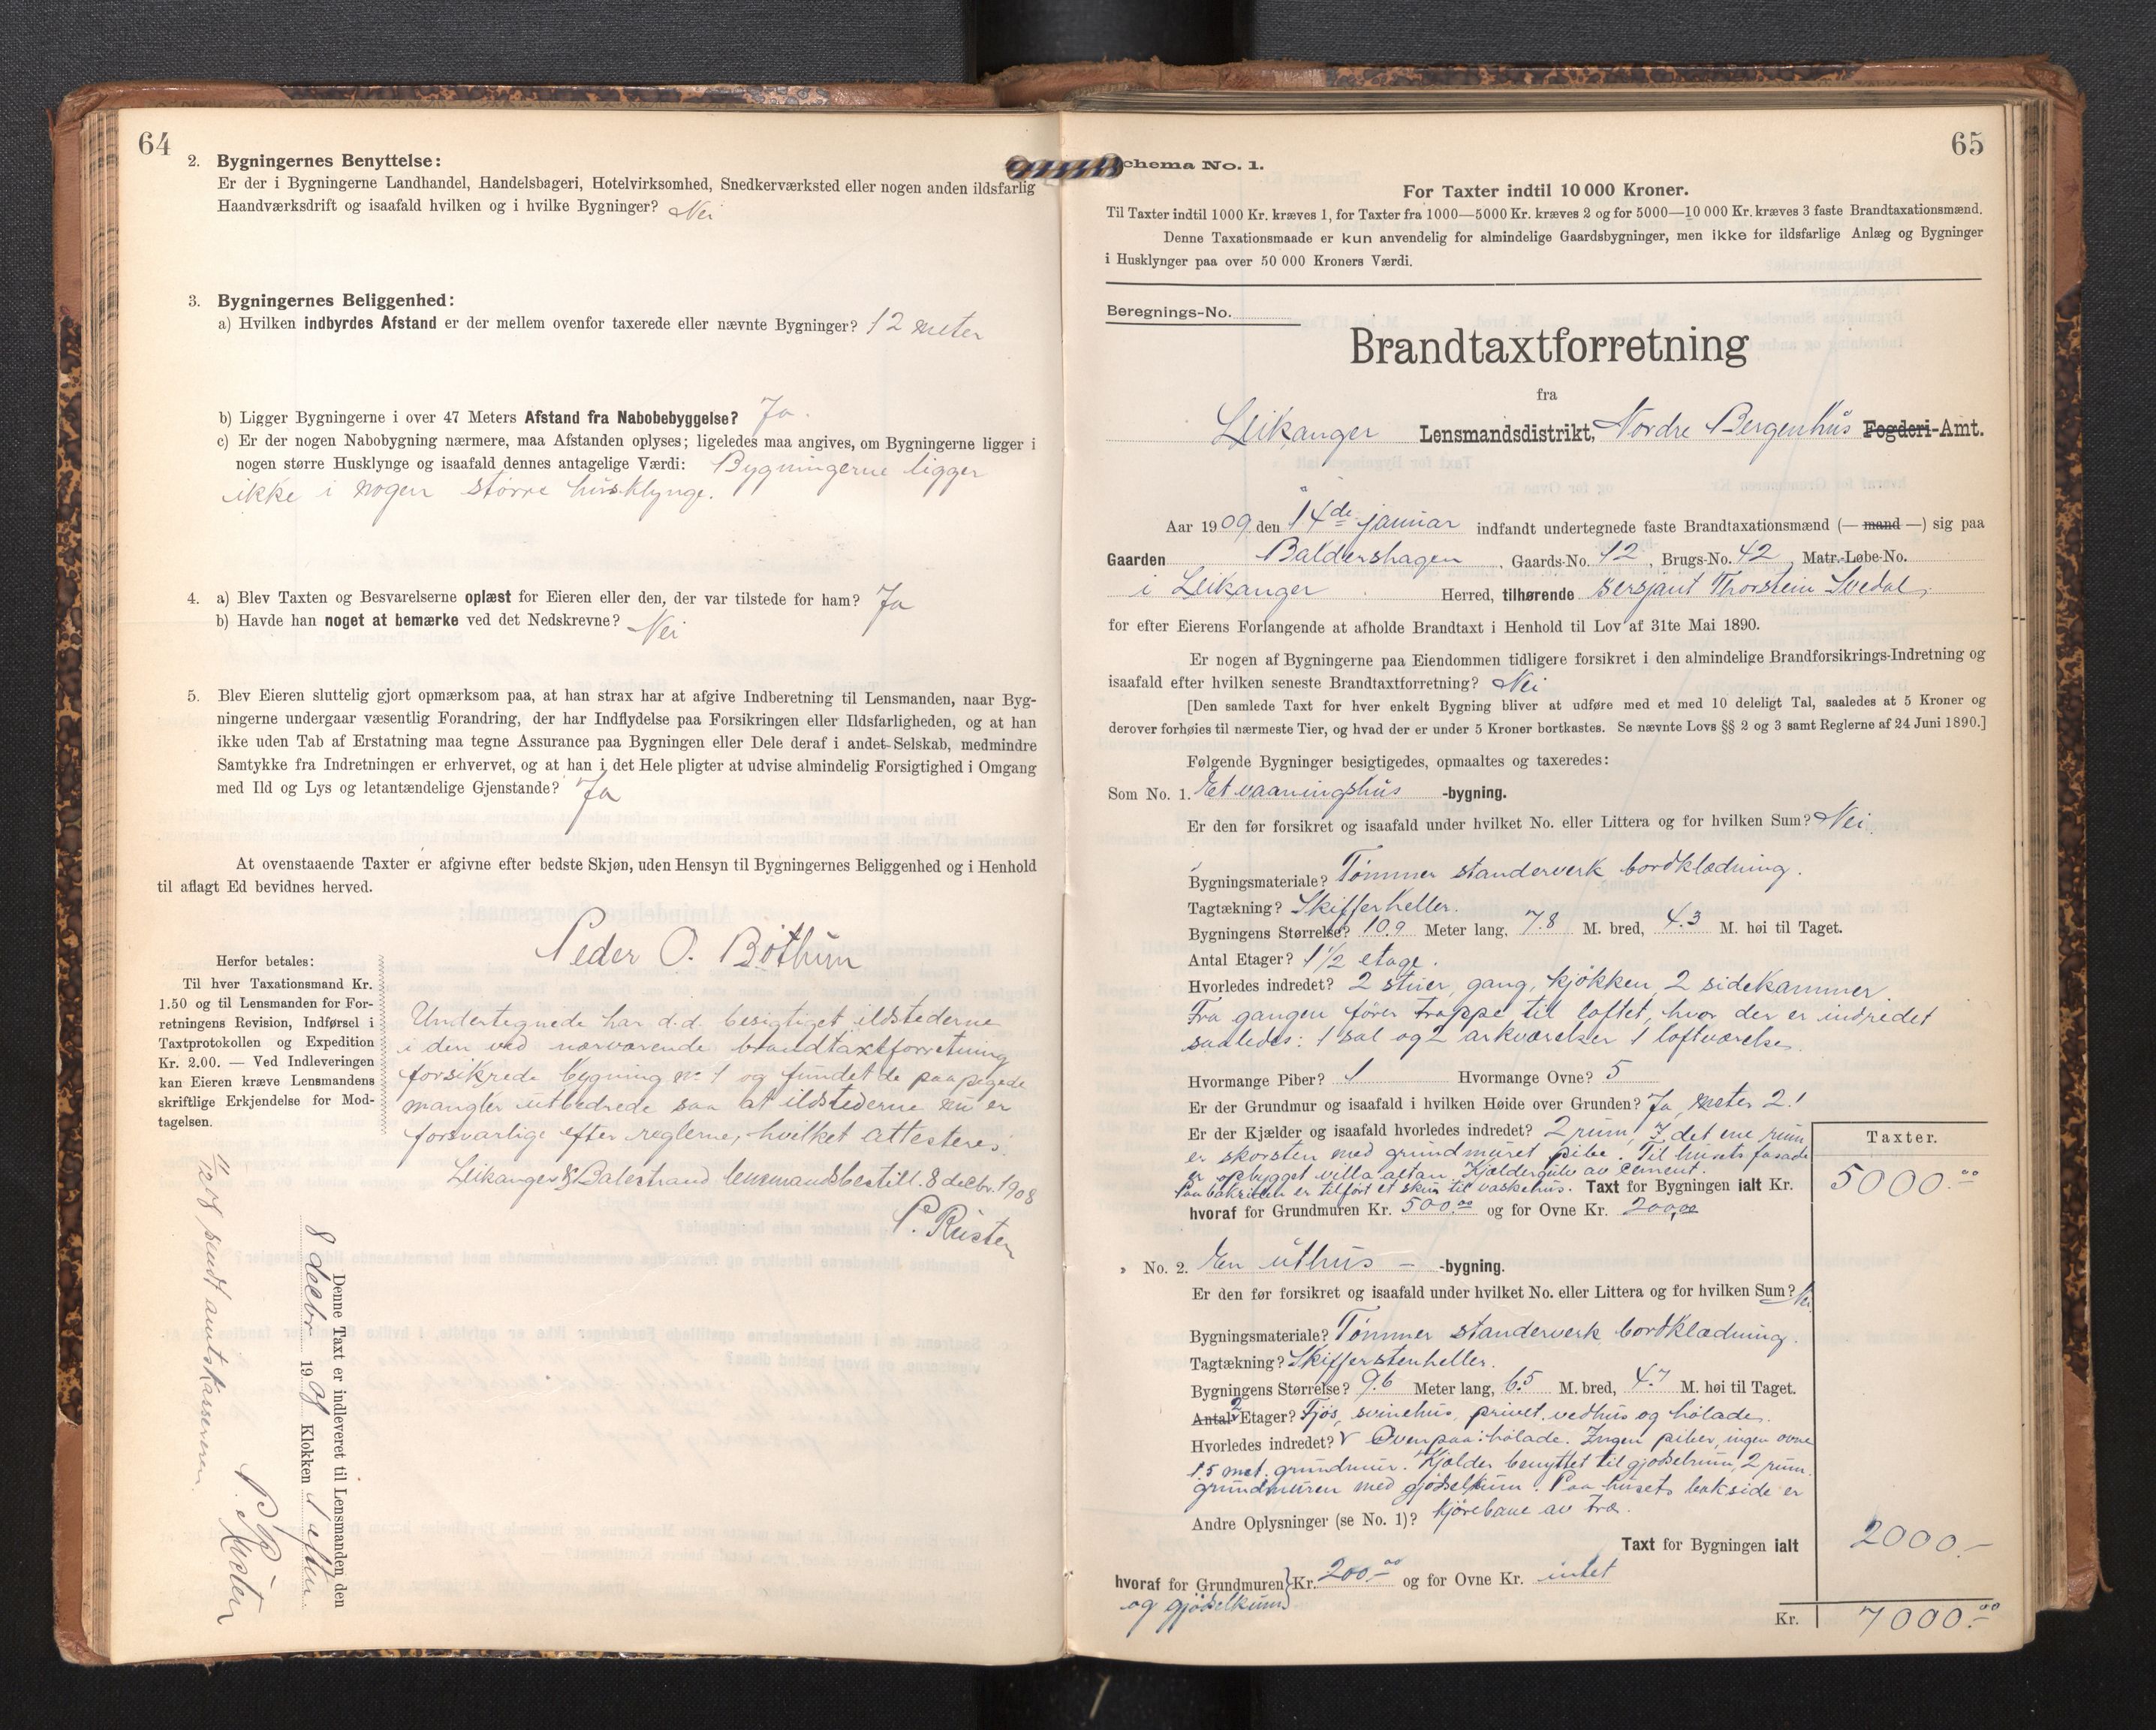 64
2. Bygningernes Benyttelse:
Er der i Bygningerne Landhandel, Handelsbageri, Hotelvirksomhed, Snedkerværksted eller nogen anden ildsfarlig
Haandværksdrift og isaafald hvilken og i hvilke Bygninger? Nei
3. Bygningernes Beliggenhed:
a) Hvilken indbyrdes Afstand er der mellem ovenfor taxerede eller nævnte Bygninger? 12 meter
b) Ligger Bygningerne i over 47 Meters Afstand fra Nabobebyggelse? Ja.
c) Er der nogen Nabobygning nærmere, maa Afstanden oplyses; ligeledes maa angives, om Bygningerne ligger i
nogen større Husklynge og isaafald dennes antagelige Værdi: Bygningerne ligger
ikke i nogen större husklynge.
4. a) Blev Taxten og Besvarelserne oplæst for Eieren eller den, der var tilstede for ham? Ja
b) Havde han noget at bemærke ved det Nedskrevne? Nei
5. Blev Eieren sluttelig gjort opmærksom paa, at han strax har at afgive Indberetning til Lensmanden, naar Byg-
ningerne undergaar væsentlig Forandring, der har Indflydelse paa Forsikringen eller Ildsfarligheden, og at han
ikke uden Tab af Erstatning maa tegne Assurance paa Bygningen eller Dele deraf i andet Selskab, medmindre
Samtykke fra Indretningen er erhvervet, og at han i det Hele pligter at udvise almindelig Forsigtighed i Omgang
med Ild og Lys og letantændelige Gjenstande? Ja
At ovenstaaende Taxter er afgivne efter bedste Skjøn, uden Hensyn til Bygningernes Beliggenhed og i Henhold
til aflagt Ed bevidnes herved.
Peder O. Böthun
Herfor betales:
Til hver Taxationsmand Kr.
1.50 og til Lensmanden for For-
retningens Revision, Indførsel i
Taxtprotokollen og Expedition
Kr. 2.00. — Ved Indleveringen
kan Eieren kræve Lensmandens
skriftlige Erkjendelse for Mod-
tagelsen.
Undertegnede har d.d. besigtiget ildstederne
i den ved nærværende brandtaxtforretning
forsikrede bygning no 1 og fundet de paapegede
mangler utbedrede saa at ildstederne nu er
forsvarlige efter reglerne, hvilket attesteres.
Leikanger & Balestrand lensmandsbestill. 8 decbr. 1908
P. Risten
Denne Taxt er indleveret til Lensmanden den
8 decbr 1908 Klokken 1 efter
P. Risten
11/12 08 sendt amtskassereren.
65
Schema No. 1.
For Taxter indtil 10 000 Kroner.
Til Taxter indtil 1000 Kr. kræves 1, for Taxter fra 1000—5000 Kr. kræves 2 og for 5000—10 000 Kr. kræves 3 faste Brandtaxationsmænd.
Denne Taxationsmaade er kun anvendelig for almindelige Gaardsbygninger, men ikke for ildsfarlige Anlæg og Bygninger
i Husklynger paa over 50 000 Kroners Værdi.
Beregnings-No.
Brandtaxtforretning
fra
Leikanger Lensmandsdistrikt, Nordre Bergenhus Fogderi-Amt.
Aar 1909 den 14de januar indfandt undertegnede faste Brandtaxationsmænd (— mand —) sig paa
Gaarden Baldershagen, Gaards-No. 12, Brugs-No. 42, Matr.-Løbe-No.
i Leikanger Herred, tilhørende sersjant Thorstein Svedal,
for efter Eierens Forlangende at afholde Brandtaxt i Henhold til Lov af 31te Mai 1890.
Er nogen af Bygningerne paa Eiendommen tidligere forsikret i den almindelige Brandforsikrings-Indretning og
isaafald efter hvilken seneste Brandtaxtforretning? Nei
[Den samlede Taxt for hver enkelt Bygning bliver at udføre med et med 10 deleligt Tal, saaledes at 5 Kroner og
derover forhøies til nærmeste Tier, og hvad der er under 5 Kroner bortkastes. Se nævnte Lovs §§ 2 og 3 samt Reglerne af 24 Juni 1890.]
Følgende Bygninger besigtigedes, opmaaltes og taxeredes:
Som No. 1. Et vaaningshus -bygning.
Er den før forsikret og isaafald under hvilket No. eller Littera og for hvilken Sum? Nei.
Bygningsmateriale? Tömmer standerverk bordklædning.
Tagtækning? Skifferheller.
Bygningens Størrelse? 10.9 Meter lang, 7.8 M. bred, 4.3 M. høi til Taget.
Antal Etager? 1 1/2 etage.
Hvorledes indredet? 2 stuer, gang, kjökken, 2 sidekammer.
Fra gangen förer trappe til loftet, hvor der er indredet
saaledes: 1 sal og 2 arkværelser 1 loftværelse.
Hvormange Piber? 1 Hvormange Ovne? 5
Er der Grundmur og isaafald i hvilken Høide over Grunden? Ja, meter 2.1
Er der Kjælder og isaafald hvorledes indredet? 2 rum. I det ene rum
er skorsten med grundmuret pibe. Til husets fasade
er opbygget villa altan. Kjældergulv av cement.
Paa baksiden er tilført et skur til vaskehus. Taxt for Bygningen ialt Kr.
Taxter.
5000.00
hvoraf for Grundmuren Kr. 500.00 og for Ovne Kr. 200.00
" No. 2. En uthus -bygning.
Er den før forsikret og isaafald under hvilket No. eller Littera og for hvilken Sum? Nei.
Bygningsmateriale? Tömmer standerverk bordklædning.
Tagtækning? Skifferstenheller.
Bygningens Størrelse? 9.6 Meter lang, 6.5 M. bred, 4.7 M. høi til Taget.
Antal 2 Etager? Fjös, svinehus, privet, vedhus og hölade.
Hvorledes indredet? Ovenpaa: hölade. Ingen piber, ingen ovne
1.5 met. grundmur. Kjælder benyttet til gjödselrum, 2 rum.
grundmuren med gjödselkum. Paa husets bakside er
Andre Oplysninger (se No. 1)? kjörebane av træ.
Taxt for Bygningen ialt 2000.-
hvoraf for Grundmuren Kr. 200.00 og for Ovne Kr. intet
og gjödselkum
Kr. 7000.00